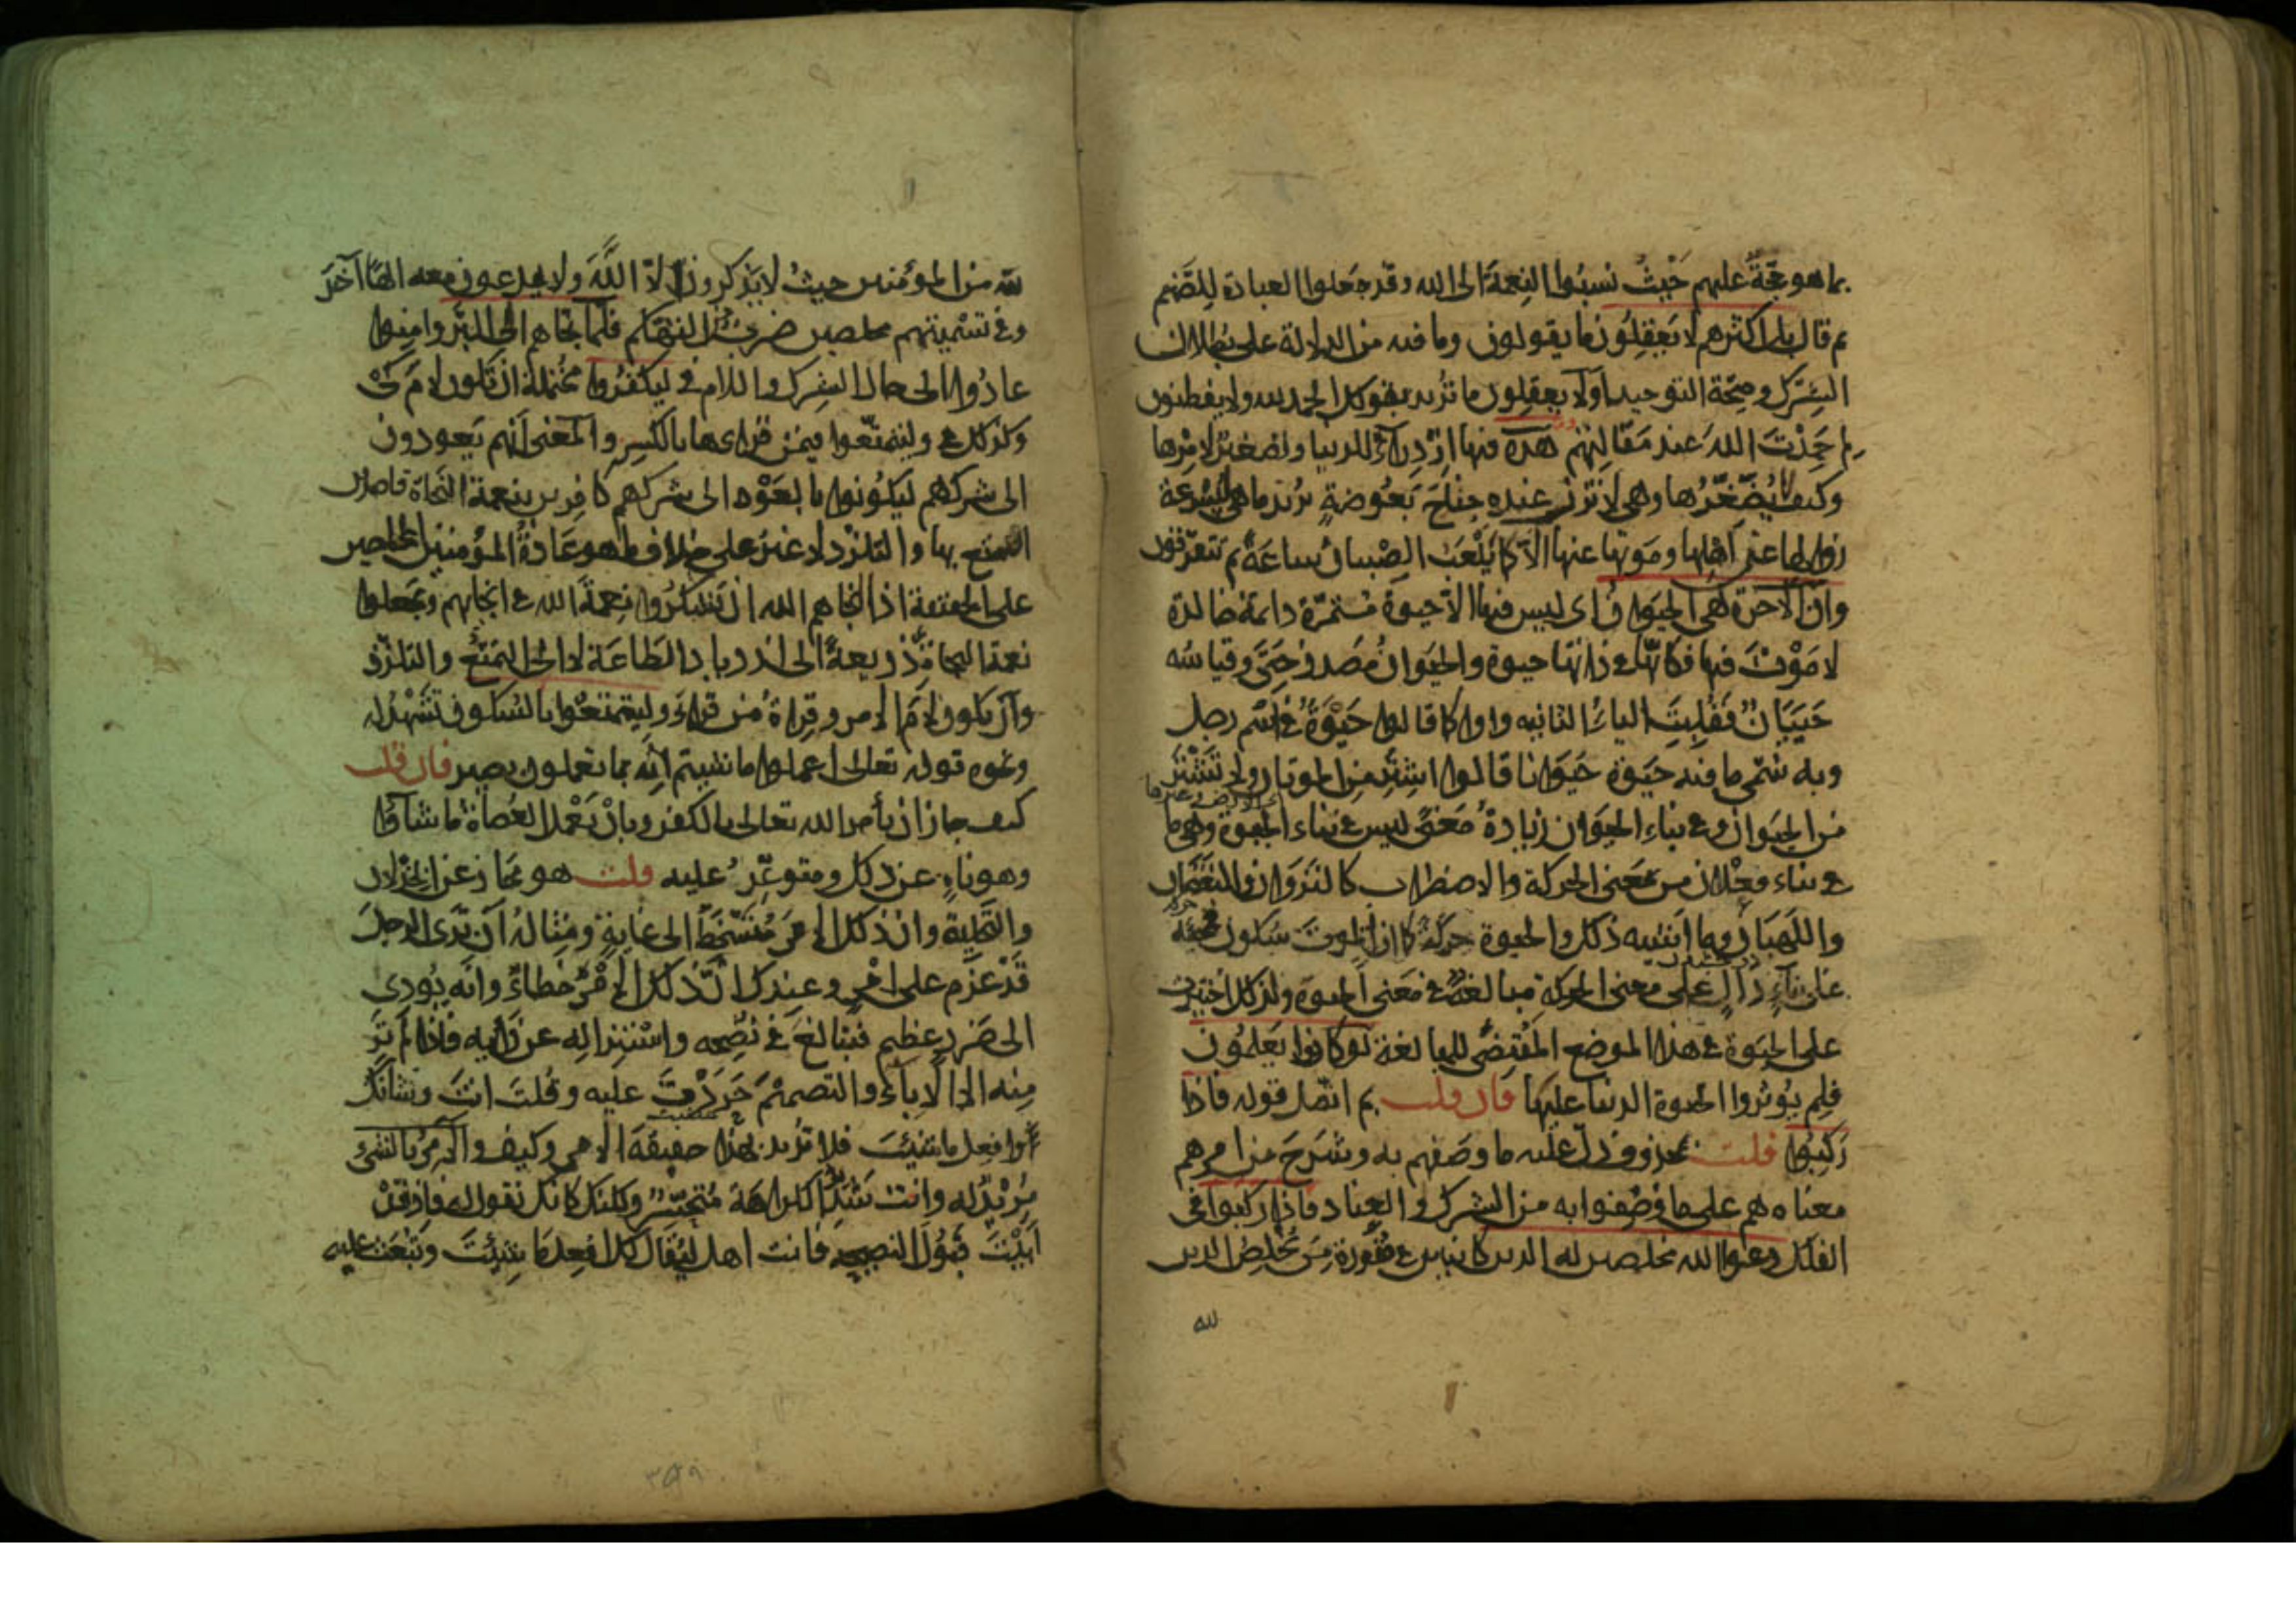 بما هو حجة عليهم حَيْثُ نسبُوا النِعمَةَ الى الله وقد جعلوا العبادة لِلصَّنَم
ثم قال بل اكثرهم لا يَعقِلُونَ ما يقولون وما فيه من الدلالة على بُطلان
الشِرك وصِحّة التوحيد اَوْ لا يعقِلون ما تُريد بقولك الحمد لله ولا يفطنون
لِمَ حَمِدْتَ اللهَ عند مَقَالتِهم هَذِهِ فيها ازْدِرَاءٌ للدنيا وتصغيرٌ لامْرِها
وكيف لا يُصَغّرُها وهى لا تَزِنُ عنده جناحَ بَعُوضةٍ يُريد ما هى لِسُرعة
زوالها عن اَهْلِها ومَوتِهم عنها الّا كما يَلْعَبُ الصِّبيانُ ساعَةً ثم يتفرّقون
وان الآخرة لَهِىَ الحيوان اى ليس فيها الّا حيوة مُستمرّة دائمة خالدة
لا مَوْتَ فيها فكانّها فى ذاتها حيوة والحَيَوانُ مَصدر حَيِىَ وقياسُه
حَيَيَانٌ فَقُلِبَتِ الياءُ الثانيه واوا كما قالوا حَيْوَةُ فى اسْمِ رجل
وبه سُمّى ما فيه حيَوة حَيَوانا قالوا اشترِ من الموتان ولا تَشْتَرِ
الارض وغيرها
من الحيَوان وفى بناءِ الحيَوان زيادةُ مَعْنًى ليس فى بناء الحيوة وهى ما
فى بناء فَعَلان من مَعنى الحركة والاضطراب كالنَزَوان والنغَضان
واللَهَبَان وما اَشبه ذلك والحيوة حركة كما ان الموتَ سكون فمجيئه
على بناءٍ دالٍّ على معنى الحركة مبالغةٌ فى مَعنى الحيوة ولذلك اُختيرت
على الحيَوة فى هذا الموضع المُقتضى للمبالغة لَوْ كانوا يَعلَمُونَ
فلم يُوثِروا الحيوة الدنيا عليها فان قلت بم اتّصل قوله فاذا
رَكِبُوا قلت بمحذوف دلّ عليه ما وصَفَهم به وشَرَحَ من امرهم
معناه هم على ما وُصِفوا به من الشرك والعِناد فاذا ركبوا فى
الفلك دعوا الله مخلصين له الدين كائنين فى صُورة مَن يُخلِصُ الدين
لله
لله من المؤمنين حيثُ لا يَذكرون الّا اللّٰهَ ولا يدعون معه الهًا آخَرَ
وفى تسْمِيتهم مخلصين ضربٌ من التهكم فلَمّا نجّاهم الى البَرّ وامِنوا
عادُوا الى حال الشرك واللام فى ليكفرُوا مُحْتَمِلة ان تكون لامَ كَىْ
وكذلك فى وليتمتّعوا فيمَن قراى ها بالكَسر والمَعنى انّهم يَعودون
الى شركهم ليكُونوا بالعَوْد الى شركهم كافِرين بنعمة النَجاة قاصدين
التمتع بها والتلذذ لا غيرُ على خلاف ما هو عَادةُ المؤمنين المخلصين
على الحقيقة اذا انجاهم الله ان يَشكُرُوا نِعمَةَ الله فى انجائهم ويَجعلوا
نعمة النجاة ذريعةً الى ازدياد الطَاعَة لا الى التمَتُّع والتلذّذ
وان يكون لامَ الامر وقِراةُ مَن قراءَ وليتمتعُوا بالسُكون تَشهَدُ له
ونحوه قوله تعالى اعملوا ما شئتم انّه بما تعملون بصير فان قلت
كيف جاز ان يأمر الله تعالى بالكفر وبانْ يَعْمل العُصاة ما شاؤا
وهو ناهٍ عن ذلك ومتوعِّدٌ عليه قلت هو مجاز عن الخِذلان
والتَخلِية وان ذلك الامرَ مُتَسَخَّطٌ الى غايةٍ ومِثالهُ اَن تَرَى الرجلَ
قد عَزم على امْرٍ وعندك انَّ ذلك الامْرَ خطاءٌ وانّه يُودى
الى ضررٍ عظيم فتبالغَ فى نُصحِه واسْتنزاله عن رَأيه فاذا لم تَرَ
مِنه الا الاِباءَ والتصميمَ حَرَدْتَ عليه وقُلتَ انتَ وشانَكَ
غضبت
وافعل ما شئتَ فلا تُريد بهذا حقيقةَ الامر وكيف والآمِرُ بالشئ
مُرِيْدٌ له وانت شَديدُ الكراهَة مُتحَسّرٌ ولكنك كانك تقول له فاذ قد
اَبَيْتَ قبُولَ النصيحه فانت اهل ليُقَال لك افعل ما شِئتَ وتُبعَث عليه
٣٥٩